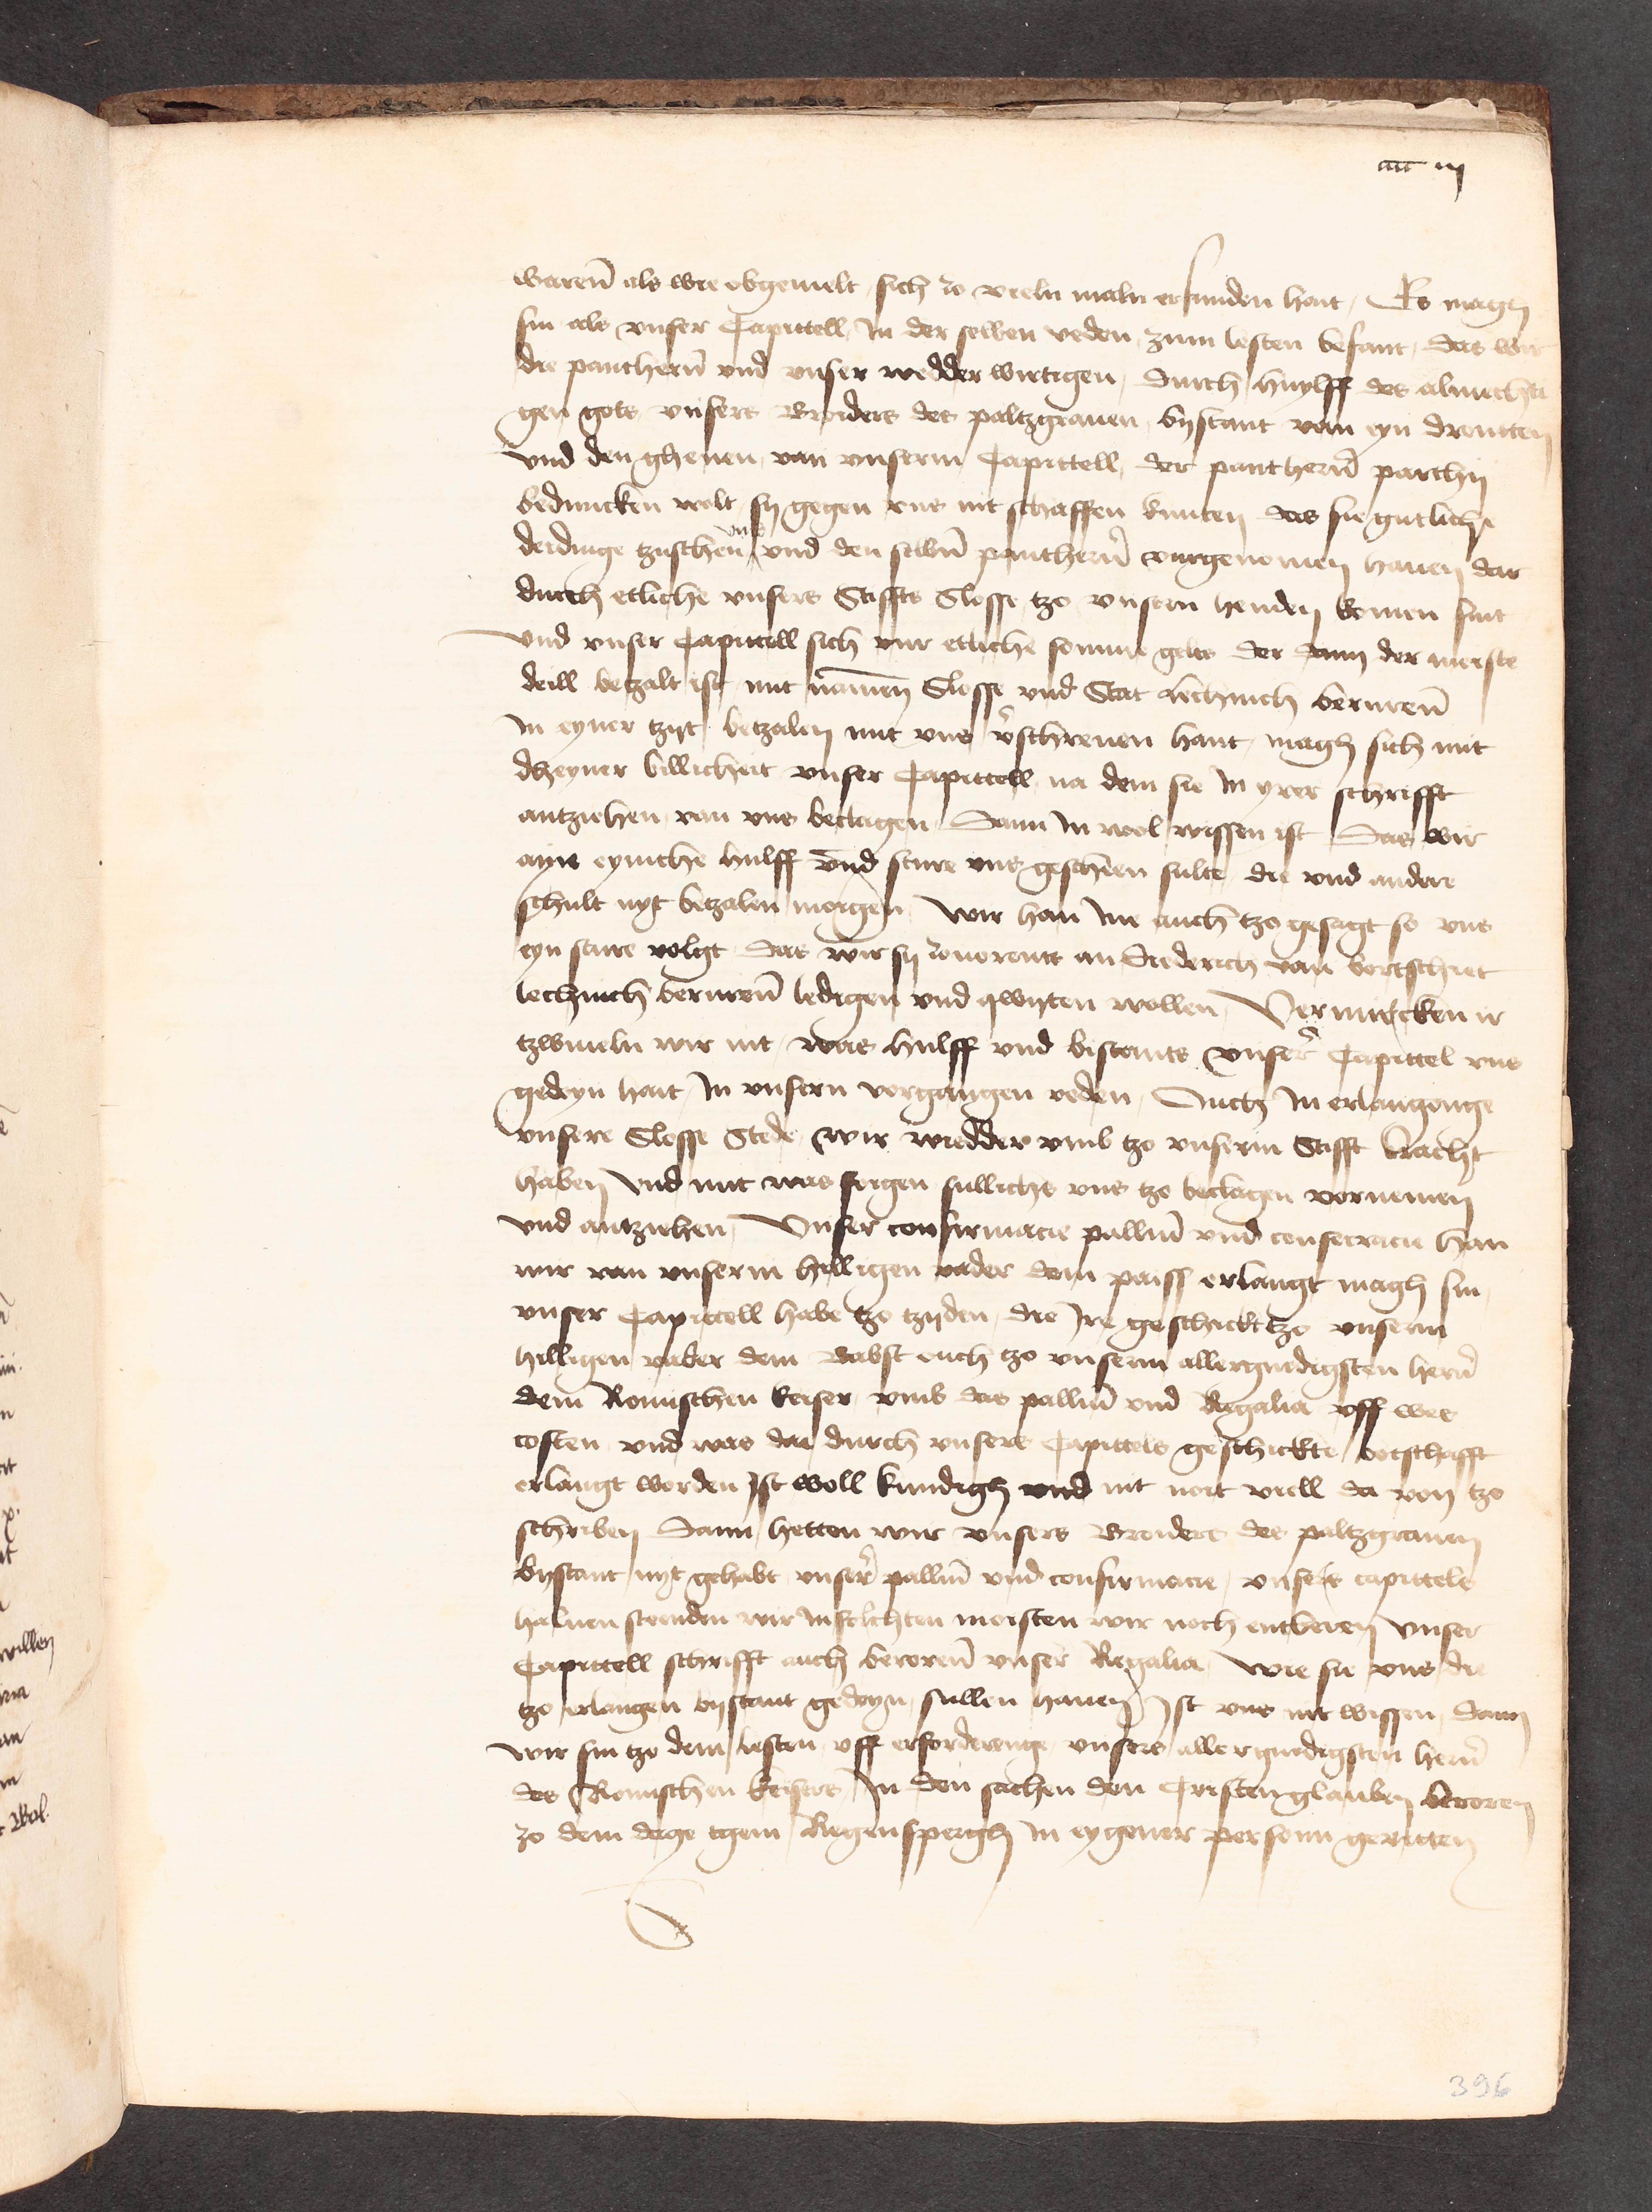 waren̄ als wie obgemelt sich zo vieln maln erfunden hait Es magh
sin als vnser Capittell In der selben veden zum lesten befant das wir
die panthern̄ vnd vnser wedder wirtigen durch huylff des almechti
gen gots vnsers Broiders des paltzgrauen bystant vom eyn dronten
vnd den ghenen van vnserm Capittell der panthern̄ parthij
beduncken wolt sy gegen vns nit schaffen kunten das sie gutliche
deidinge tzuschen vns vnd den selbn̄ panthern̄ vurgenomen hauen dar
durch etliche vnsers Stiffts Slosse tzo vnsern henden komen sint
vnd vnser Capittell sich vur etliche somme gelts der dann der meiste
deill betzalt ist mit namen Slosse vnd Stat Lechnich beruren̄
In eyner tzijt betzalen mit vns v̄schreuen hant magh sich mit
dheyner billicheit vnser Capittell na dem sie In yrer schrifft
antziehen van vns beclagen Dann In wol wissen ist Das wir
ayn eyniche hulff vnd sture vns geschien sulte die vnd andere
schult nyt betzalen moigen wir han Ine auch tzo gesagt so vns
eyn sture volgt das wir sy zouorentt an Diederich van bortschiet
lechnich beruren̄ ledigen vnd qwijten wollen Vermircken ir
tzwiueln wir nit was hulff vnd bistants vnser̄ Capittel vns
gedayn hait In vnsern vorgangen veden Auch In erlangonge
vnsere Slosse Stede wir wiedder vmb tzo vnserm Stifft bracht
haben vnd mit was foigen sullichs vns tzo beclagen vornemen
vnd antziehen Vnser confirmacie palliū vnd consecracie han
wir van vnserm hilligen vader dem paiss erlangt magh sin
vnser Capittell habe tzo tzijden die Ire geschickt tzo vnserm
hilligen vader dem Babst ouch tzo vnserm allergnedigsten hern̄
dem Romischen keiser vmb das palliū vnd Regalia vff wes
costen vnd was dae durch vnsers Capittels geschickte botschafft
erlangt worden Ist woll kundigh vnd nit noit viell da von tzo
schriben Dann hetten wir vnsers Broiders des paltzgrauen
bystant nyt gehabt vnser̄ palliū vnd confirmacie vnsers capittels
haluen stonden wir In solchten moisten wir noch entberen vnser
Capittell schrifft auch beroren̄ vnser Regalia wie sie vns die
tzo erlangen bystant gedayn sullen hauen Ist vns nit wissen dann
wir sin tzo dem lesten vff erforderunge vnsers allergnedigsten hern̄
des Romischen keysers In den sachen den Cristenglauben beroren
zo dem dage tgem Regenspergh In eygener personn geritten
396